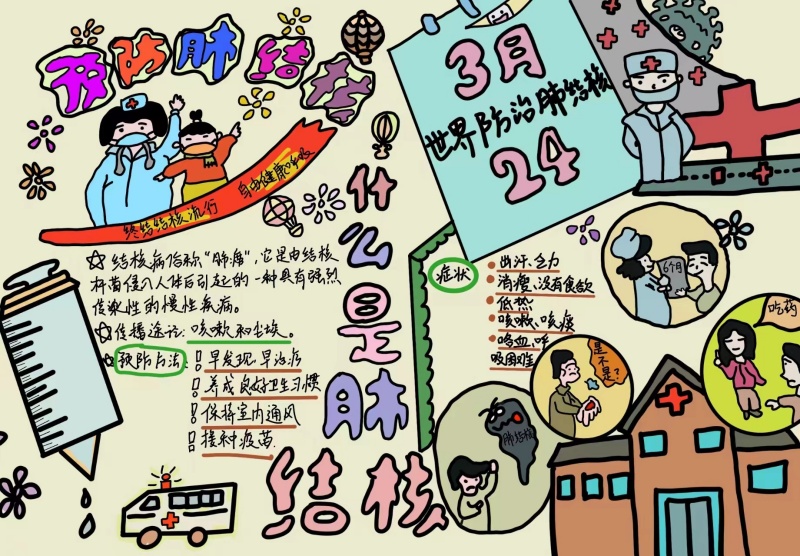 预防肺结核
终结结核流行 自由健康呼吸
3月
世界防治肺结核
24
什么是肺
结核
☆结核病俗称“肺痨”,它是由结核
杆菌侵入人体后引起的一种具有强烈
传染性的慢性疾病。
☆传播途记:咳嗽和尘埃。
预防方法:
早发现,早治疗
养成良好卫生习惯
保持室内通风
接种疫苗
症状
出汗、乏力
消瘦、没有食欲
低热
咳嗽、咳痰
咯血、呼
吸困难
6个月
吃药
是不是?
肺结核